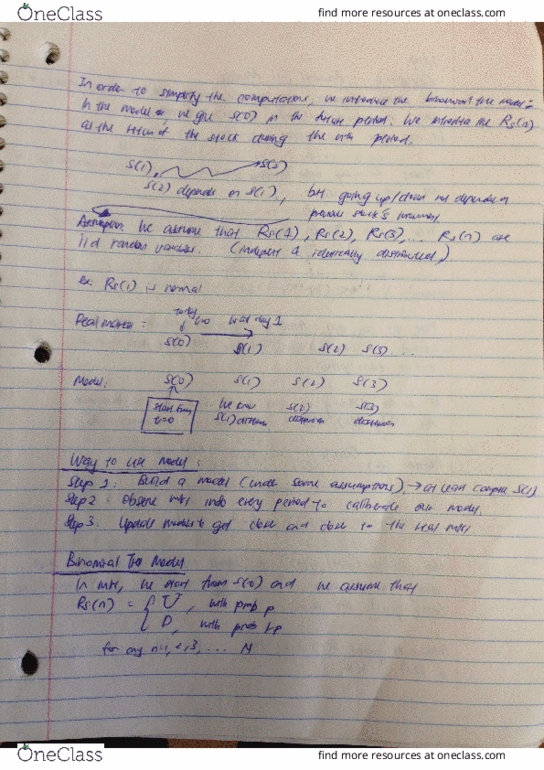 OneClass
find more resources at oneclass.com
In order to simplify the computations, we introduce the binomial tree model:
In the model we give S(0) in the future period. We introduce the Rs(n)
as the return of the stock during the nth period.
S(1) S(2)
S(2) depends on S(1), but going up/down not depends on
previous stock's
Assumption: We assume that Rs(1), Rs(2), Rs(3), ... Rs(n) are
iid random variables. (independent & identically distributed)
ex: Rs(1) is normal
today
t=0 wait day 1
Real market:
S(0) S(1) S(2) S(3) ...
Model: S(0) S(1) S(2) S(3)
start from We know S(2) S(3)
t=0 S(1) distribution distribution
Way to use model:
Step 1: Build a model (under some assumptions), → at least S(1)
Step 2: Observe mkt info every period to calibrate our model.
Step 3: Update model to get close and close to the real mkt
Binomial Tree Model
In mkt, we start from S(0) and we assume that
Rs(n) = { U, with prob p
D, with prob 1-p
for any n=1,2,3, .... N
OneClass
find more resources at oneclass.com